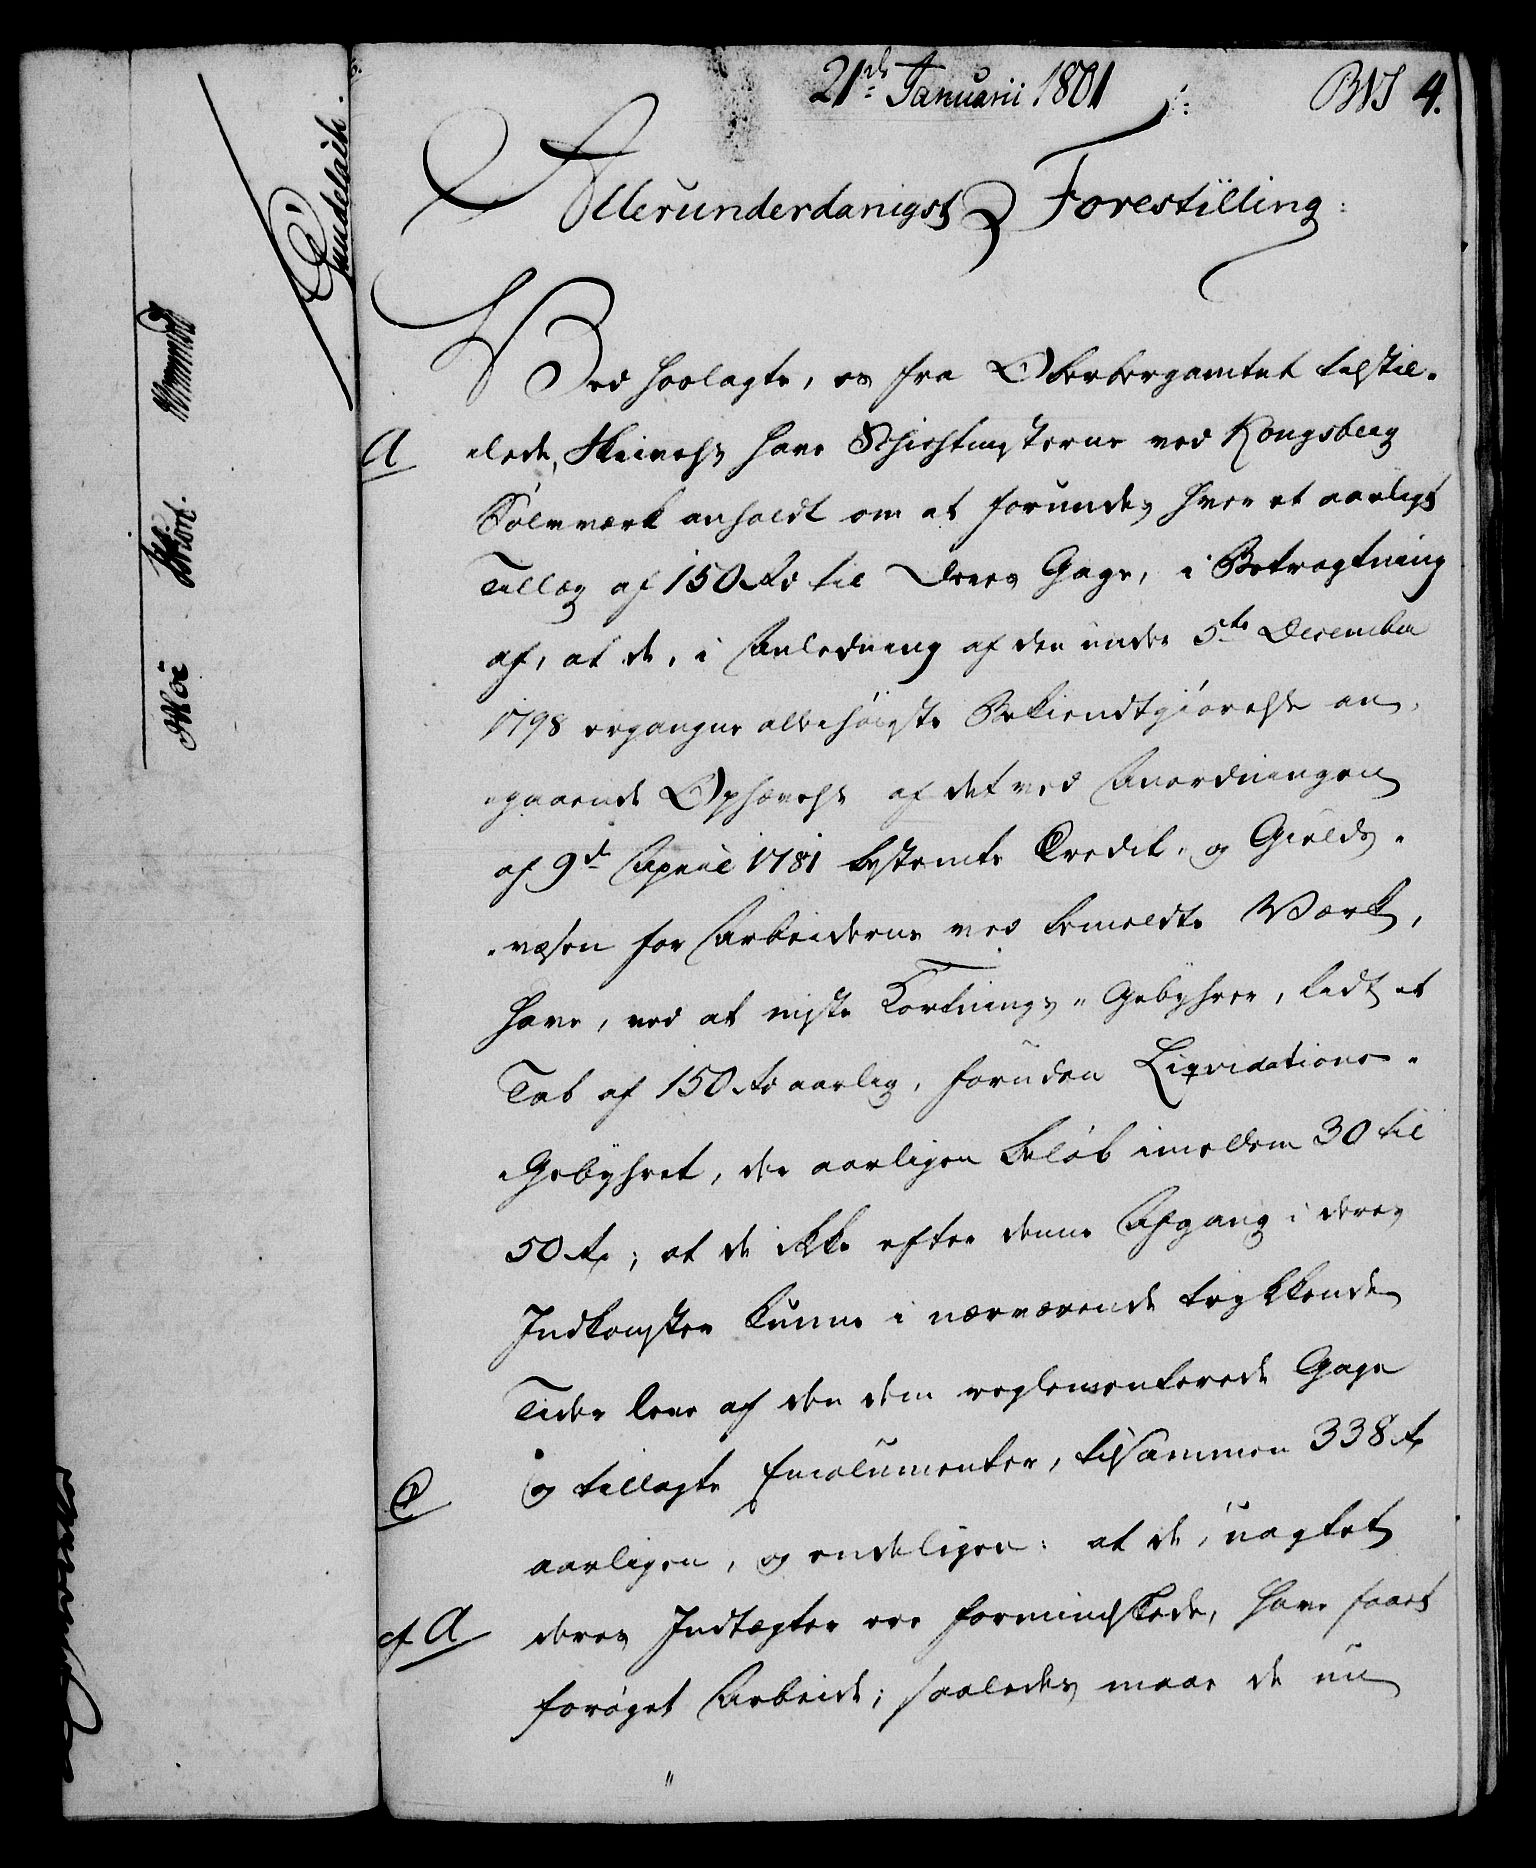 21de Januarii 1801
BWS 4.
Allerunderdanigst Forestilling:
Ved hoslagte, os fra Oberbergamtet tilstil-
A
-lede, Skrivelse have Schichtmesterne ved Kongsberg
Sølvværk anholdt om at forundes hver et aarligt
Tillæg af 150 rd til deres Gage, i Betragtning
af, at de, i Anledning af den under 5te December
1798 ergangne allerhøieste Bekiendtgiørelse an-
-gaaende Ophævelse af det ved Anordningen
af 9de April 1781 bestemte Credit- og Gields-
-væsen for Arbeiderne ved bemeldte Værk,
have, ved at miste Kortnings-Gebyhrer, lidt et
Tab af 150 rd aarlig, foruden Liqvidations-
-Gebyhret, der aarligen beløb imellem 30 til
50 rd; at de ikke efter denne Afgang i deres
Indkomster kunne i nærværende trykkende
Tider leve af den dem reglementerede Gage
C
og tillagte Emolumenter, tilsammen 338 rd
aarligen, og endeligen: at de, uagtet
cf A
deres Indtægter ere formindskede, have faaet
forøget Arbeide; saaledes maae de nu